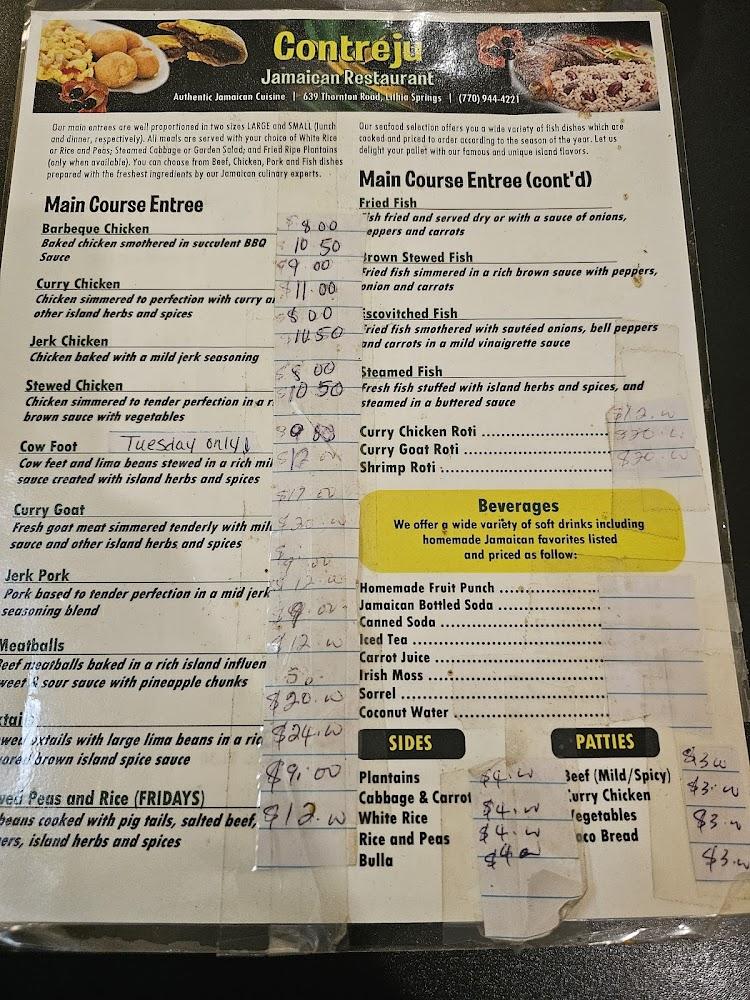 Contreju
Jamaican Restaurant
Authentic Jamaican Cuisine | 639 Thornton Road, Lithia Springs | (770) 944-4221
Our main entrees are well proportioned in two sizes LARGE and SMALL (lunch
and dinner, respectively). All meals are served with your choice of White Rice
or Rice and Peas; Steamed Cabbage or Garden Salad; and Fried Ripe Plantains
(only when available). You can choose from Beef, Chicken, Pork and Fish dishes
prepared with the freshest ingredients by our Jamaican culinary experts.
Main Course Entree
Barbeque Chicken $8.00
Baked chicken smothered in succulent BBQ $10 50
Sauce
$9 00
Curry Chicken $11.00
Chicken simmered to perfection with curry
other island herbs and spices $8 00
Jerk Chicken $10 50
Chicken baked with a mild jerk seasoning
$8 00
Stewed Chicken $10 50
Chicken simmered to tender perfection in a
brown sauce with vegetables
Cow Foot Tuesday only!
Cow feet and lima beans stewed in a rich $12 00
sauce created with island herbs and spices
Curry Goat
Fresh goat meat simmered tenderly with
sauce and other island herbs and spices
Jerk Pork
Pork based to tender perfection in a mid jerk
seasoning blend
Meatballs $12.00
Beef meatballs baked in a rich island
sweet & sour sauce with pineapple chunks
$20.00
oxtails with large lima beans in a $24.00
brown island spice sauce
$9.00
Peas and Rice (FRIDAYS)
beans cooked with pig tails, salted beef, $12.00
island herbs and spices
Our seafood selection offers you a wide variety of fish dishes which are
cooked and priced to order according to the season of the year. Let us
delight your pallet with our famous and unique island flavors.
Main Course Entree (cont'd)
Fried Fish
Fish fried and served dry or with a sauce of onions,
peppers and carrots
Brown Stewed Fish
Fried fish simmered in a rich brown sauce with peppers,
onion and carrots
Escovitched Fish
Fried fish smothered with sautéed onions, bell peppers
and carrots in a mild vinaigrette sauce
Steamed Fish
Fresh fish stuffed with island herbs and spices, and
steamed in a buttered sauce
$12.00
Curry Chicken Roti $20.00
Curry Goat Roti $20.00
Shrimp Roti
Beverages
We offer a wide variety of soft drinks including
homemade Jamaican favorites listed
and priced as follow:
Homemade Fruit Punch
Jamaican Bottled Soda
Canned Soda
Iced Tea
Carrot Juice
Irish Moss
Sorrel
Coconut Water
SIDES
Plantains $4.00
Cabbage & Carrot
White Rice $4.00
Rice and Peas $4.00
Bulla $4.00
PATTIES
$3.00
Beef (Mild/Spicy)
Curry Chicken $3.00
Vegetables $3.00
Coco Bread
$3.00